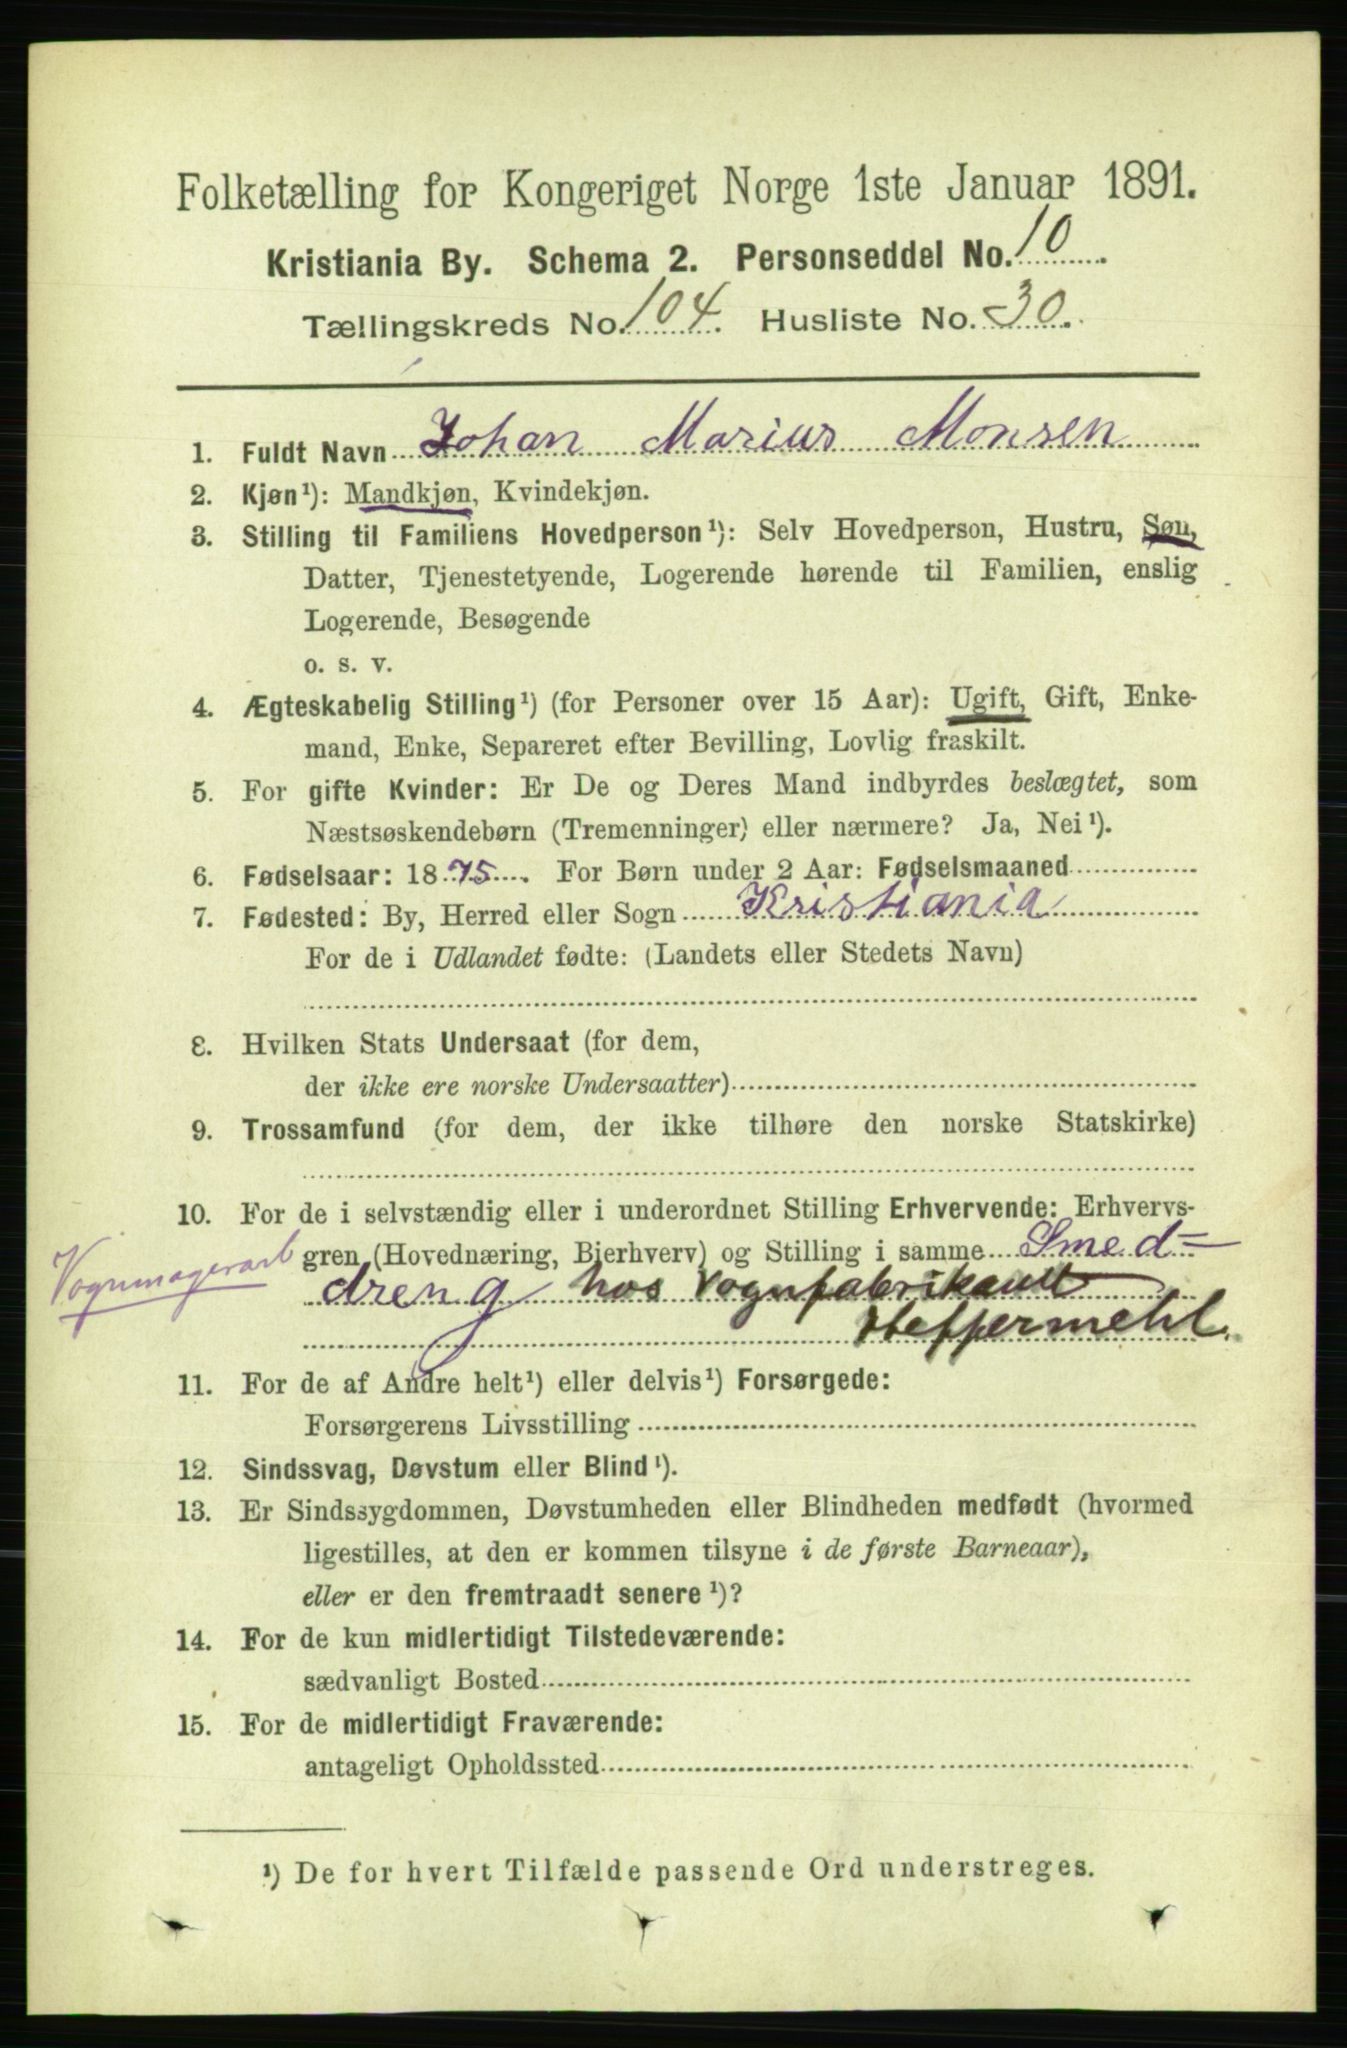 Folketælling for Kongeriget Norge 1ste Januar 1891.
Kristiania By. Schema 2. Personseddel No. 10
Tællingskreds No. 104. Husliste No. 30.
1. Fuldt Navn Johan Marius Monsen
2. Kjøn¹): Mandkjøn, Kvindekjøn.
3. Stilling til Familiens Hovedperson¹): Selv Hovedperson, Hustru, Søn,
Datter, Tjenestetyende, Logerende hørende til Familien, enslig
Logerende, Besøgende
o. s. v.
4. Ægteskabelig Stilling¹) (for Personer over 15 Aar): Ugift, Gift, Enke-
mand, Enke, Separeret efter Bevilling, Lovlig fraskilt.
5. For gifte Kvinder: Er De og Deres Mand indbyrdes beslægtet, som
Næstsøskendebørn (Tremenninger) eller nærmere? Ja, Nei¹).
6. Fødselsaar: 1875. For Børn under 2 Aar: Fødselsmaaned
7. Fødested: By, Herred eller Sogn Kristiania
For de i Udlandet fødte: (Landets eller Stedets Navn)
8. Hvilken Stats Undersaat (for dem,
der ikke ere norske Undersaatter)
9. Trossamfund (for dem, der ikke tilhøre den norske Statskirke)
10. For de i selvstændig eller i underordnet Stilling Erhvervende: Erhvervs-
Vognmagerarb
gren (Hovednæring, Bierhverv) og Stilling i samme Smed=
dreng hos Vognfabrikant
Heffermehl.
11. For de af Andre helt¹) eller delvis¹) Forsørgede:
Forsørgerens Livsstilling
12. Sindssvag, Døvstum eller Blind¹).
13. Er Sindssygdommen, Døvstumheden eller Blindheden medfødt (hvormed
ligestilles, at den er kommen tilsyne i de første Barneaar),
eller er den fremtraadt senere¹)?
14. For de kun midlertidigt Tilstedeværende:
sædvanligt Bosted
15. For de midlertidigt Fraværende:
antageligt Opholdssted
¹) De for hvert Tilfælde passende Ord understreges.